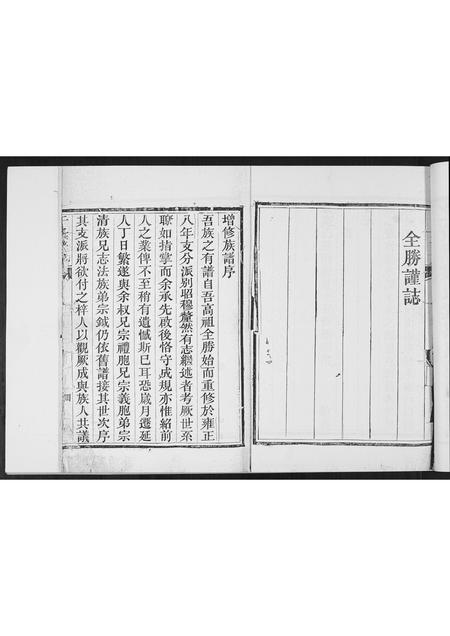 全勝謹誌
增修族譜序
吾族之有譜自吾高祖全勝始而重修於雍正
八年支分派別昭穆釐然有志繼述者考厥世系
瞭如指掌而余承先啟後恪守成規亦惟紹前
人之業俾不至稍有遺憾斯已耳恐歲月遷延
人丁日繁遂與余叔兄宗禮胞兄宗義胞弟宗
清族兄志法族弟宗鉞仍依舊譜接其世次序
其支派將欲付之梓人以觀厥成與族人共議